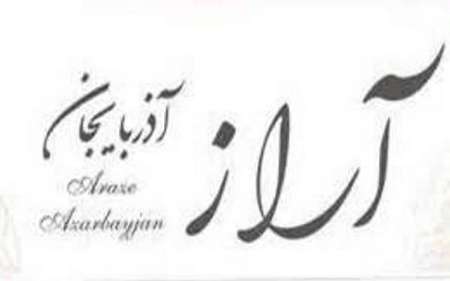 آراز
آذربایجان
Araze
Azarbayjan